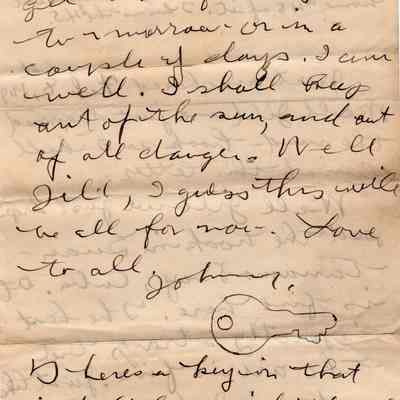 to-morrow or in a
couple of days. I am
well. I shall keep
out of the sun, and out
of all danger. Well
I guess this will
be all for now. Love
to all,
Johnny.
Theres a key on that